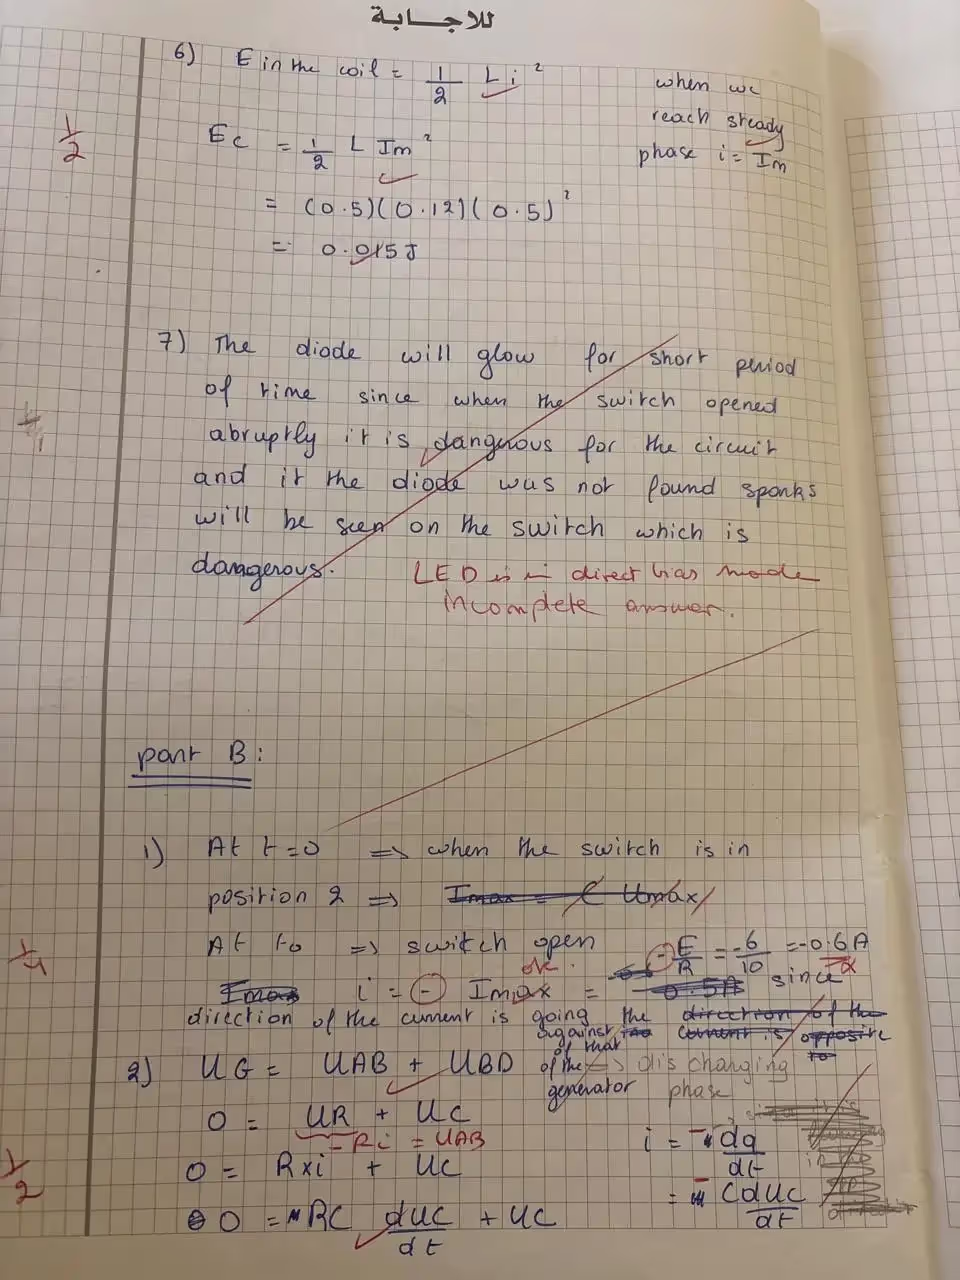 للاجـــابة
6) E in the coil = 1/2 L i²
when we
reach steady
phase i = Im
1/2
Ec = 1/2 L Im²
= (0.5)(0.12)(0.5)²
= 0.015J
7) The diode will glow for short period
of time since when the switch opened
abruptly it is dangerous for the circuit
and it the diode was not found sparks
will be seen on the switch which is
dangerous.
LED is in direct bias mode
incomplete answer.
part B:
1) At t=0 => when the switch is in
position 2 => Imax = C Umax
At t0 => switch open
ok.
i = - Imax = - E/R = -6/10 = -0.6A since
1/4
direction of the current is going the direction of the
against current is opposite
of that to
of the => discharging
generator phase
2) UG = UAB + UBD
0 = UR + UC
= Ri = UAB
0 = R×i + UC
1/2
0 = RC dUC/dt + UC
i = - dq/dt
= - C dUC/dt